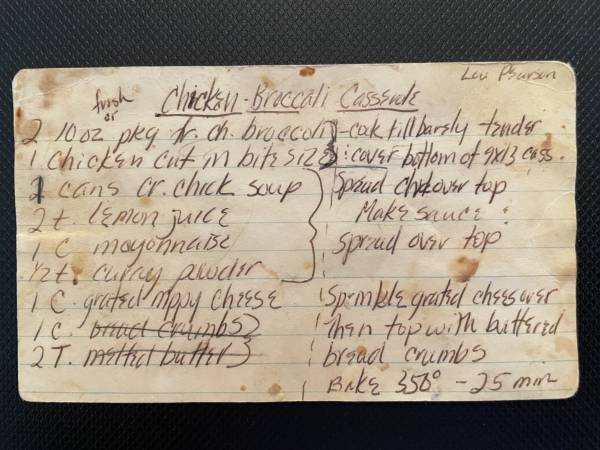 Lou Pearson
Chicken-Broccoli Casserole
fresh
or
2 10 oz pkg fr. ch. broccoli - cook till barely tender
1 chicken cut in bite size : cover bottom of 9x13 cass.
2 cans cr. chick soup Spread chk over top
2 t. lemon juice Make sauce :
1 C mayonnaise spread over top
1/2 t. curry powder
1 C. grated mppy cheese Sprinkle grated cheese over
1 C. bread crumbs Then top with buttered
2 T. melted butter bread crumbs
BAKE 350° - 25 min